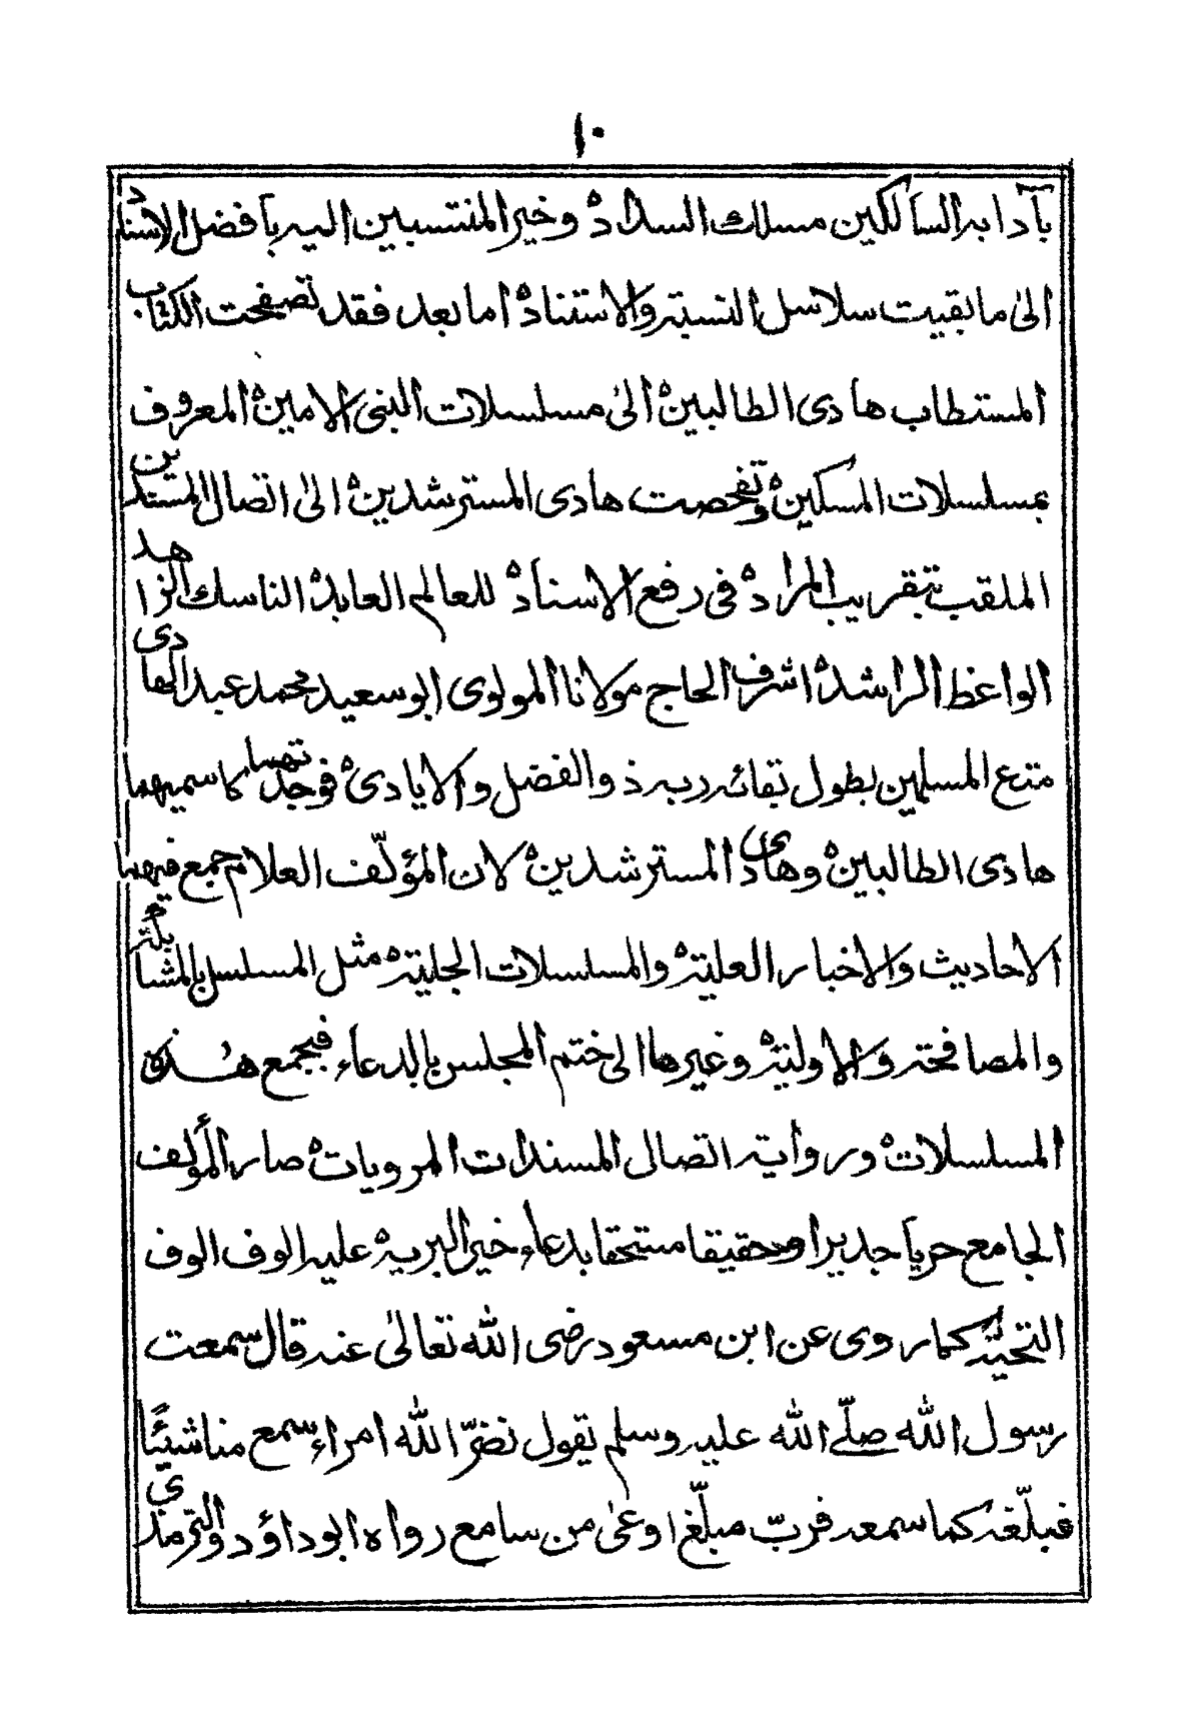 ١٠
بآدابه السالكين مسلك السداد ه وخير المنتسبين اليه بافضل الاسناد
الى ما بقيت سلاسل النسبة والاستناد ه اما بعد فقد تصفحت الكتاب
المستطاب هادى الطالبين ه الى مسلسلات النبى الامين ه المعروف
بمسلسلات المسكين ه وتفحصت هادى المسترشدين ه الى اتصال المسندين
الملقب بتقريب المراد ه فى رفع الاسناد ه للعالم العابد ه الناسك الزاهد
الواعظ الراشد ه اشرف الحاج مولانا المولوى ابو سعيد محمد عبد الهادى
متع المسلمين بطول بقائه ربه ذو الفضل والايادى ه فوجدتهما كاسميهما
هادى الطالبين ه وهادى المسترشدين ه لان المؤلّف العلام جمع فيهما
الاحاديث والاخبار العلية ه والمسلسلات الجلية ه مثل المسلسل بالمشابكة
والمصافحة والاولية ه وغيرها الى ختم المجلس بالدعاء فبجمع هٰذه
المسلسلات ه ورواية اتصال المسندات المرويات ه صار المؤلف
الجامع حريا جديرا وحقيقا مستحقا بدعاء خير البرية ه عليه الوف الوف
التحيّة كما روى عن ابن مسعود رضى الله تعالىٰ عنه قال سمعت
رسول الله صلّى الله عليه وسلم يقول نضرّ الله امراء سمع منا شيئًا
فبلّغه كما سمعه فربّ مبلّغ اوعىٰ من سامع رواه ابو داؤد والترمذي